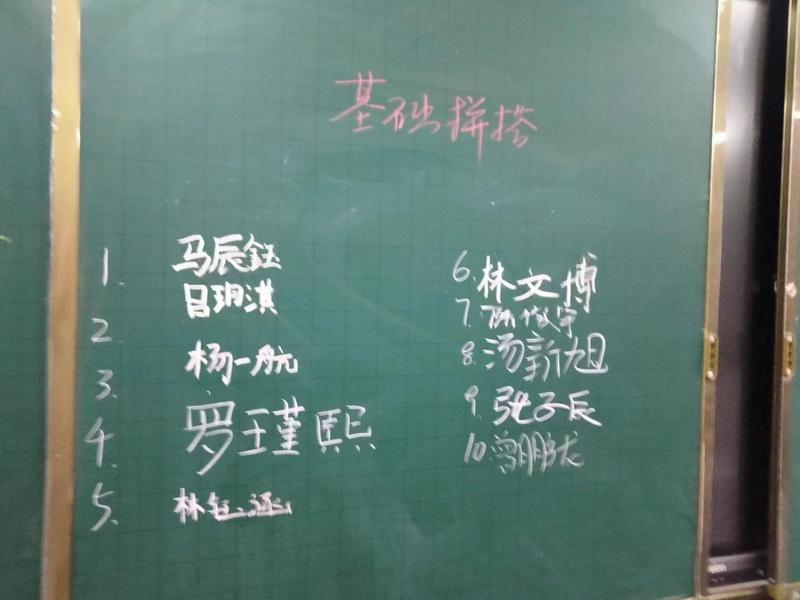 基础拼搭
1. 马辰钰
2. 吕玥淇
3. 杨一航
4. 罗瑾熙
5. 林钰涵
6. 林文博
7. 陈俊宇
8. 汤新旭
9. 张子辰
10. 曾鹏龙